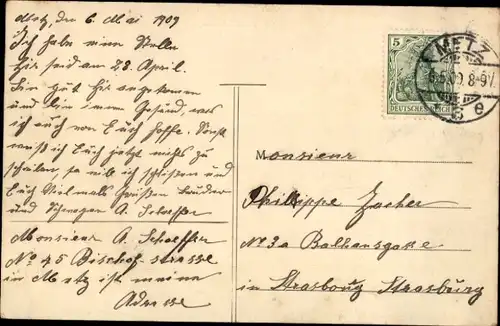 Metz, den 6 Mai 1909
Ich habe eine Stelle
hir seid am 28. April.
Bin gut hir angekomen
und bin imm Gesund, was
ich auch von Euch hoffe. Sonst
weiß ich Euch jetzt nichts zu
schreiben so will ich schließen und
Euch Vielmals Grüßen bruder
und Schwager A. Schaeffer
Monsieur A. Schaeffer
No 45 Bischof strasse
in Metz ist meine
Adresse
5
DEUTSCHES REICH
METZ
6.5.09. 8-9V.
e
Monsieur
Philippe Zacher
No 3a Balkansgasse
in Strasboug Strasburg